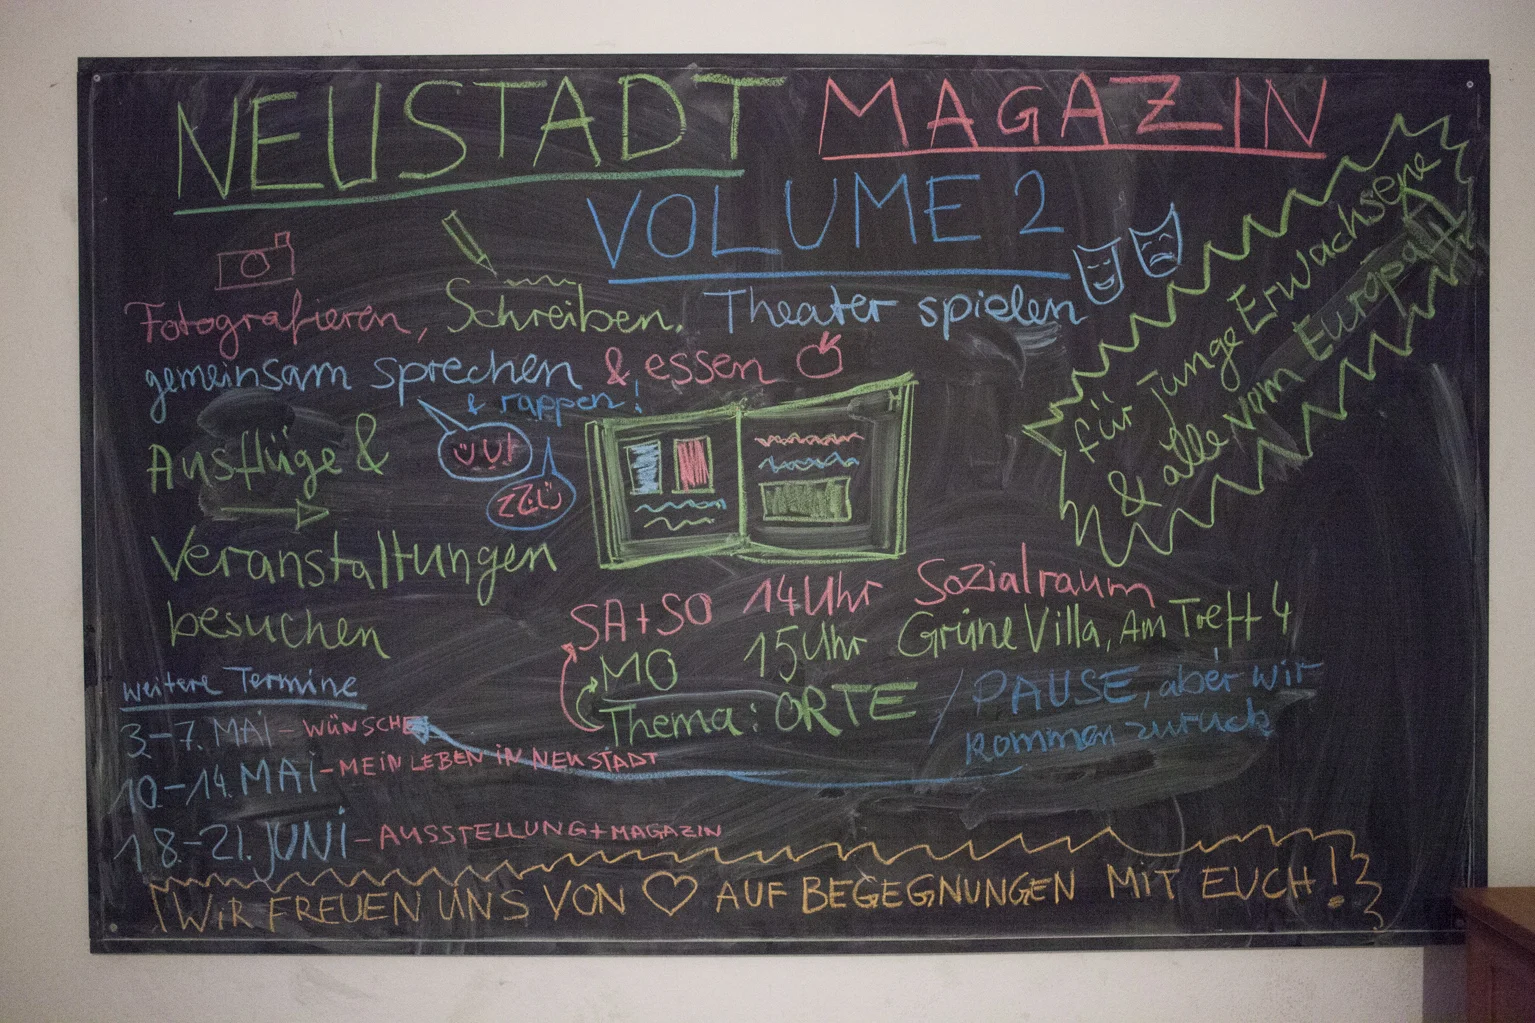 NEUSTADT MAGAZIN
VOLUME 2
Fotografieren, Schreiben, Theater spielen
gemeinsam sprechen & essen
& rappen!
Ausflüge &
Veranstaltungen
besuchen
für junge Erwachsene
& alle vom Europa
SA+SO 14 Uhr Sozialraum
MO 15 Uhr Grüne Villa, Am Treff 4
Thema: ORTE / PAUSE, aber wir
kommen zurück
weitere Termine
3.-7. MAI - WÜNSCHE
10.-14. MAI - MEIN LEBEN IN NEUSTADT
18.-21. JUNI - AUSSTELLUNG+MAGAZIN
WIR FREUEN UNS VON ♡ AUF BEGEGNUNGEN MIT EUCH!